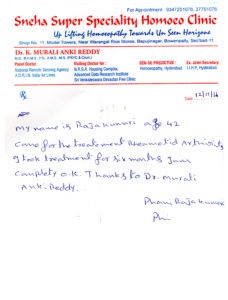 For Appointment 9347251076, 27751076
Sneha Super Speciality Homoeo Clinic
Up Lifting Homoeopathy Towards Un Seen Horizens
Shop No. 11, Model Towers, Near Warangal Rice Stores, Bapunagar, Bowenpally, Sec'bad-11
Dr. K. MURALI ANKI REDDY
Panel Doctor
National Remote Sensing Agency
Visiting Doctor for :
N.R.S.A. Housing Complex,
Advanced Data Research Institute
Sri Venkateswara Devastas Free Clinic
Homoeopathy, Hyderabad
Ex. Joint Secretary
I.I.H.P, Hyderabad
Date
My name is Raja kumari age 42
Came for the treatement Rheamatid Arthrioitis
I took treatment for six months. I am
Complety O.K. Thanks to Dr. Murali
Anki Reddy.